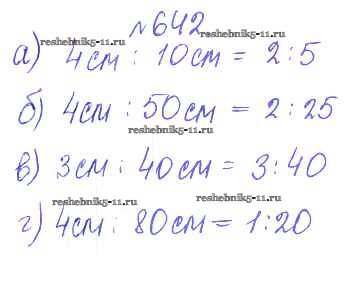 №642
reshebnik5-11.ru
а) 4см : 10см = 2 : 5
б) 4см : 50см = 2 : 25
reshebnik5-11.ru
в) 3см : 40см = 3 : 40
reshebnik5-11.ru reshebnik5-11.ru
г) 4см : 80см = 1 : 20